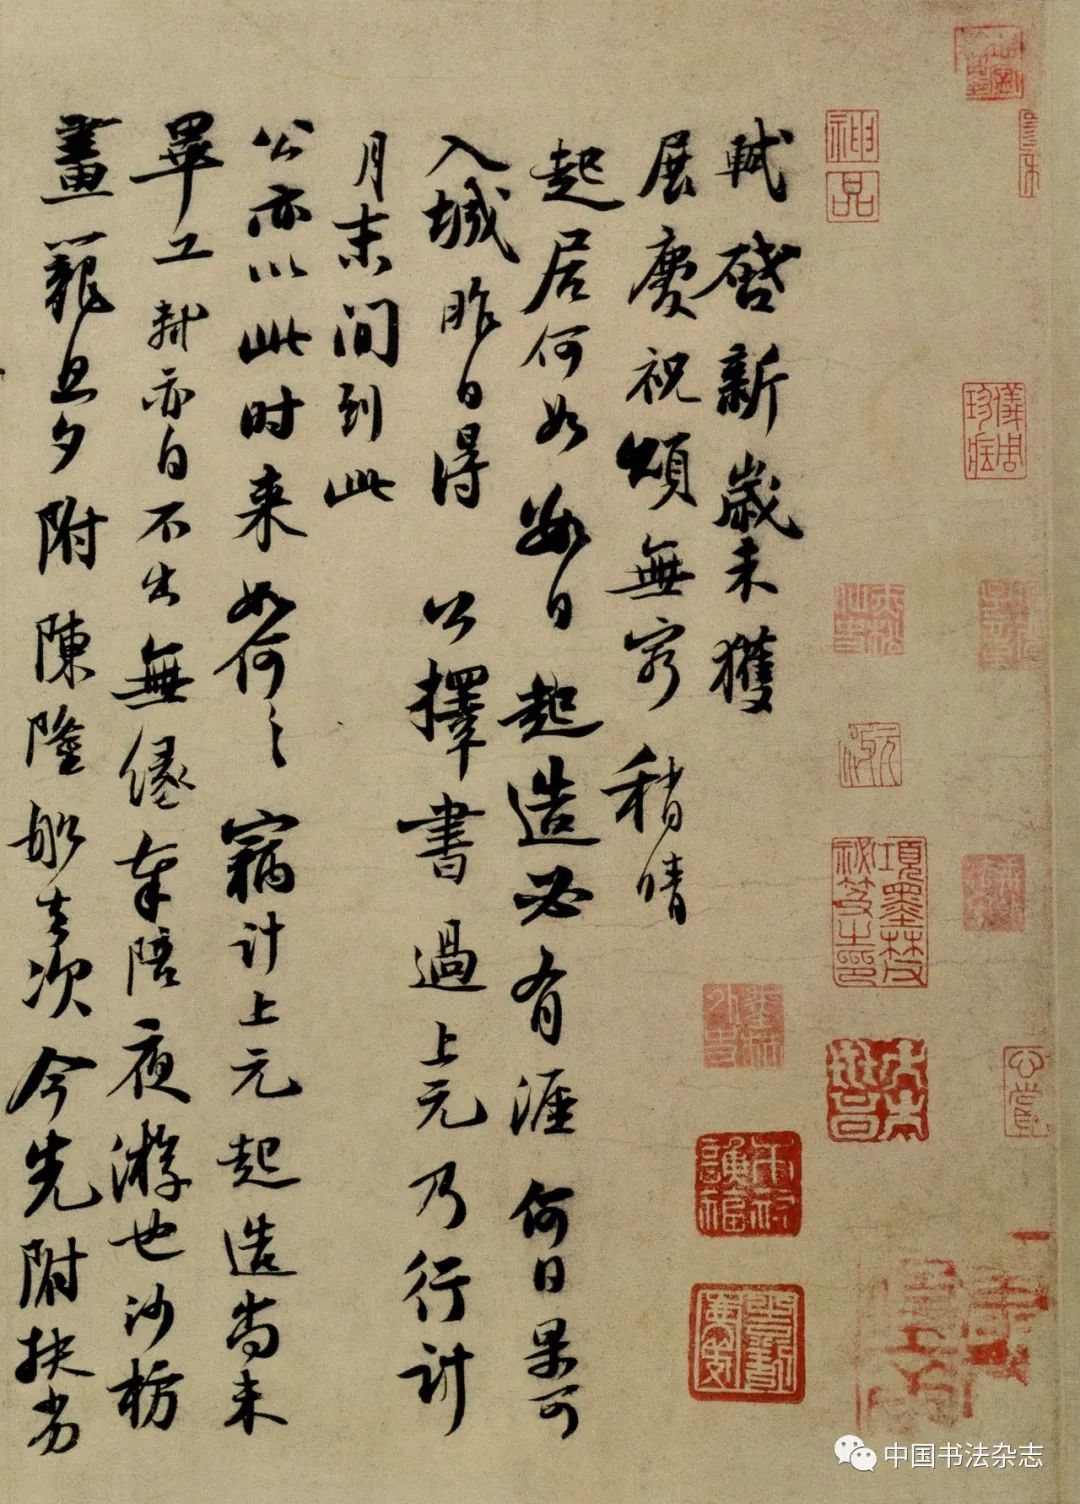 軾啓新歲未獲
展慶祝頌無窮稍晴
起居何如數日起造必有涯何日果可
入城昨日得公擇書過上元乃行計
月末間到此
公亦以此時來如何〻竊計上元起造尚未
畢工軾亦自不出無緣奉陪夜遊也沙枋
畫籠旦夕附陳隆船去次今先附扶劣
神品
項墨林父
祕笈之印
中国书法杂志